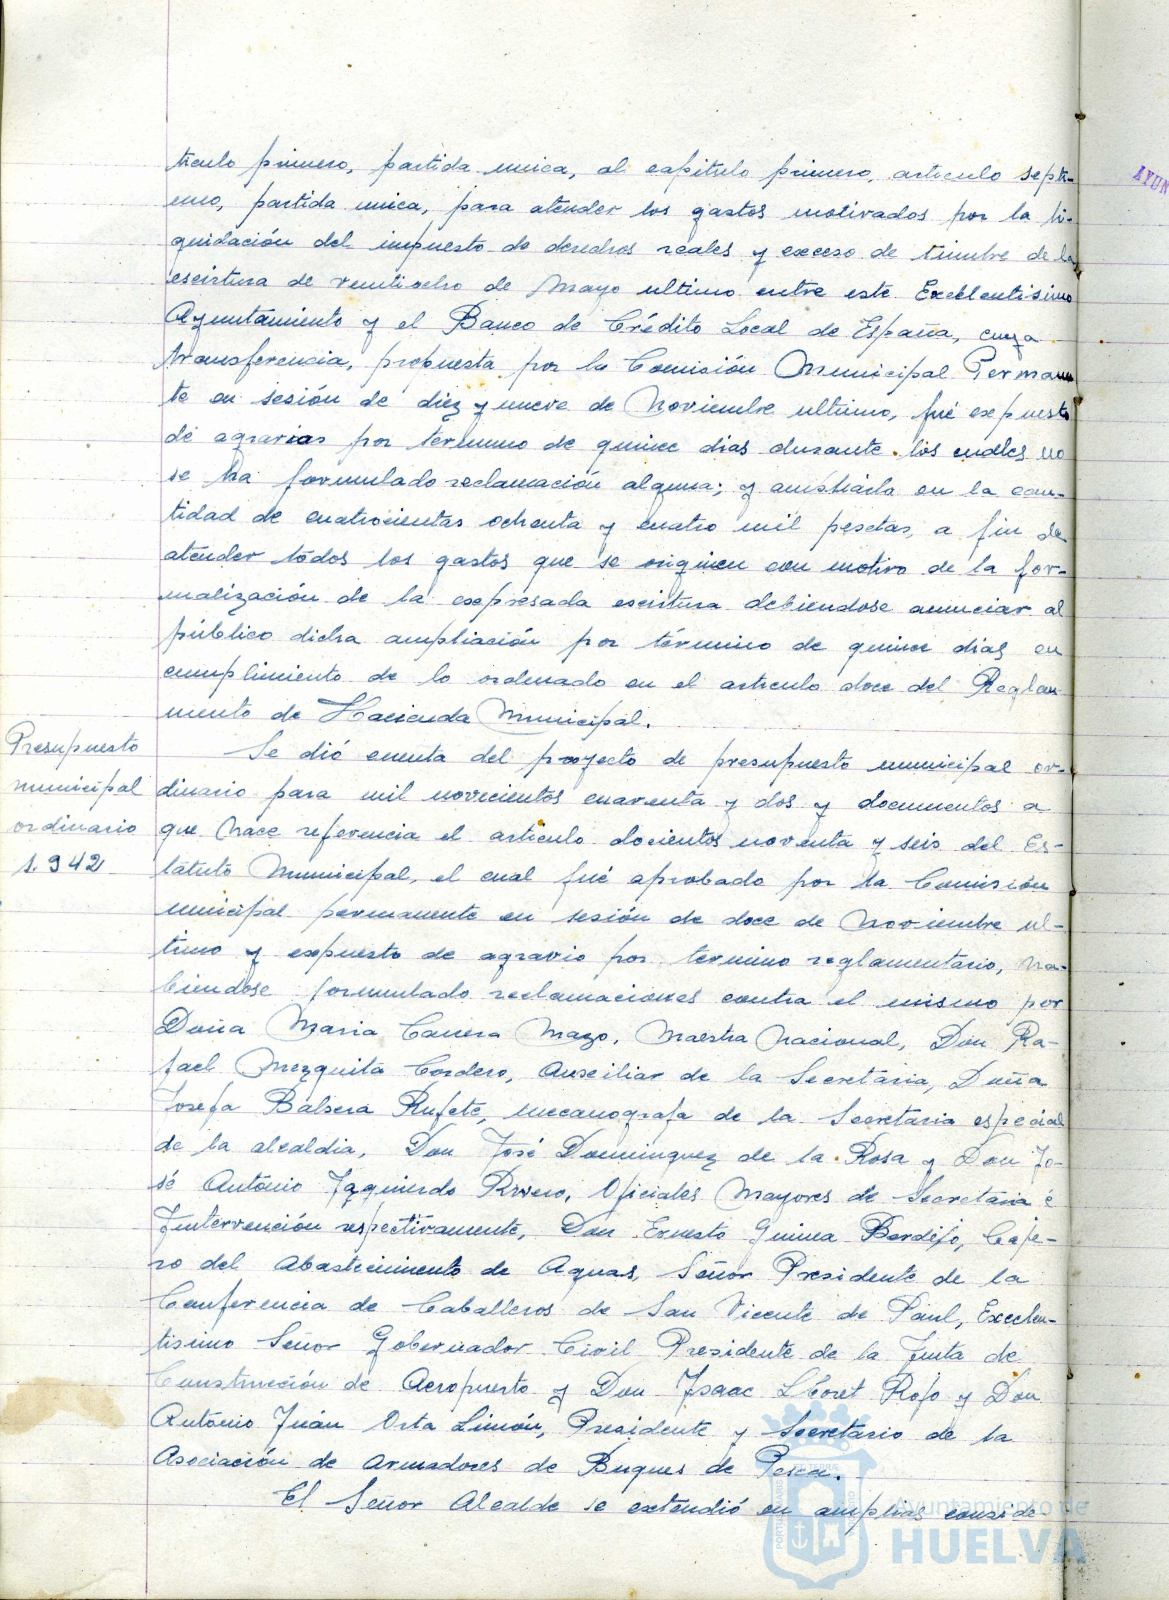 ticulo primero, partida unica, al capitulo primero, articulo septi-
mo, partida unica, para atender los gastos motivados por la li-
quidación del impuesto de derechos reales y exceso de timbre de la
escritura de veintiocho de Mayo ultimo entre este Excelentisimo
Ayuntamiento y el Banco de Crédito Local de España, cuya
transferencia, propuesta por la Comisión Municipal Permanen
te en sesión de diez y nueve de Noviembre ultimo, fué expuesto
de agravias por termino de quince dias durante los cuales no
se ha formulado reclamación alguna; y ampliarla en la can-
tidad de cuatrocientas ochenta y cuatro mil pesetas, a fin de
atender todos los gastos que se originen con motivo de la for-
malización de la expresada escritura debiendose anunciar al
público dicha ampliación por término de quince dias en
cumplimiento de lo ordenado en el articulo doce del Regla
mento de Hacienda Municipal.
Presupuesto
municipal
ordinario
1.942
Se dió cuenta del proyecto de presupuesto municipal or-
dinario para mil novecientos cuarenta y dos y documentos a
que hace referencia el articulo docientos noventa y seis del Es-
tatuto Municipal, el cual fué aprobado por la Comisión
municipal permanente en sesión de doce de Noviembre ul-
timo y expuesto de agravio por termino reglamentario, ha-
biendose formulado reclamaciones contra el mismo por
Doña Maria Mazo, Maestra Nacional, Don Ra-
fael Mezquita Cordero, Auxiliar de la Secretaria, Doña
Josefa Balsera Rufete, mecanografa de la Secretaria especial
de la alcaldia, Don José Dominguez de la Rosa y Don Jo-
sé Antonio Izquierdo Rivero, Oficiales Mayores de Secretaria e
Intervención respectivamente, Don Ernesto Guinea Berdejo, Caje-
ro del Abastecimiento de Aguas, Señor Presidente de la
Conferencia de Caballeros de San Vicente de Paul, Excelen-
tisimo Señor Gobernador Civil Presidente de la Junta de
Construcción de Aeropuerto y Don Isaac Lloret Rojo y Don
Antonio Juán Orta Limón, Presidente y Secretario de la
Asociación de Armadores de Buques de Pesca.
El Señor Alcalde se extendió en amplias conside-
AYUN
Ayuntamiento de
HUELVA